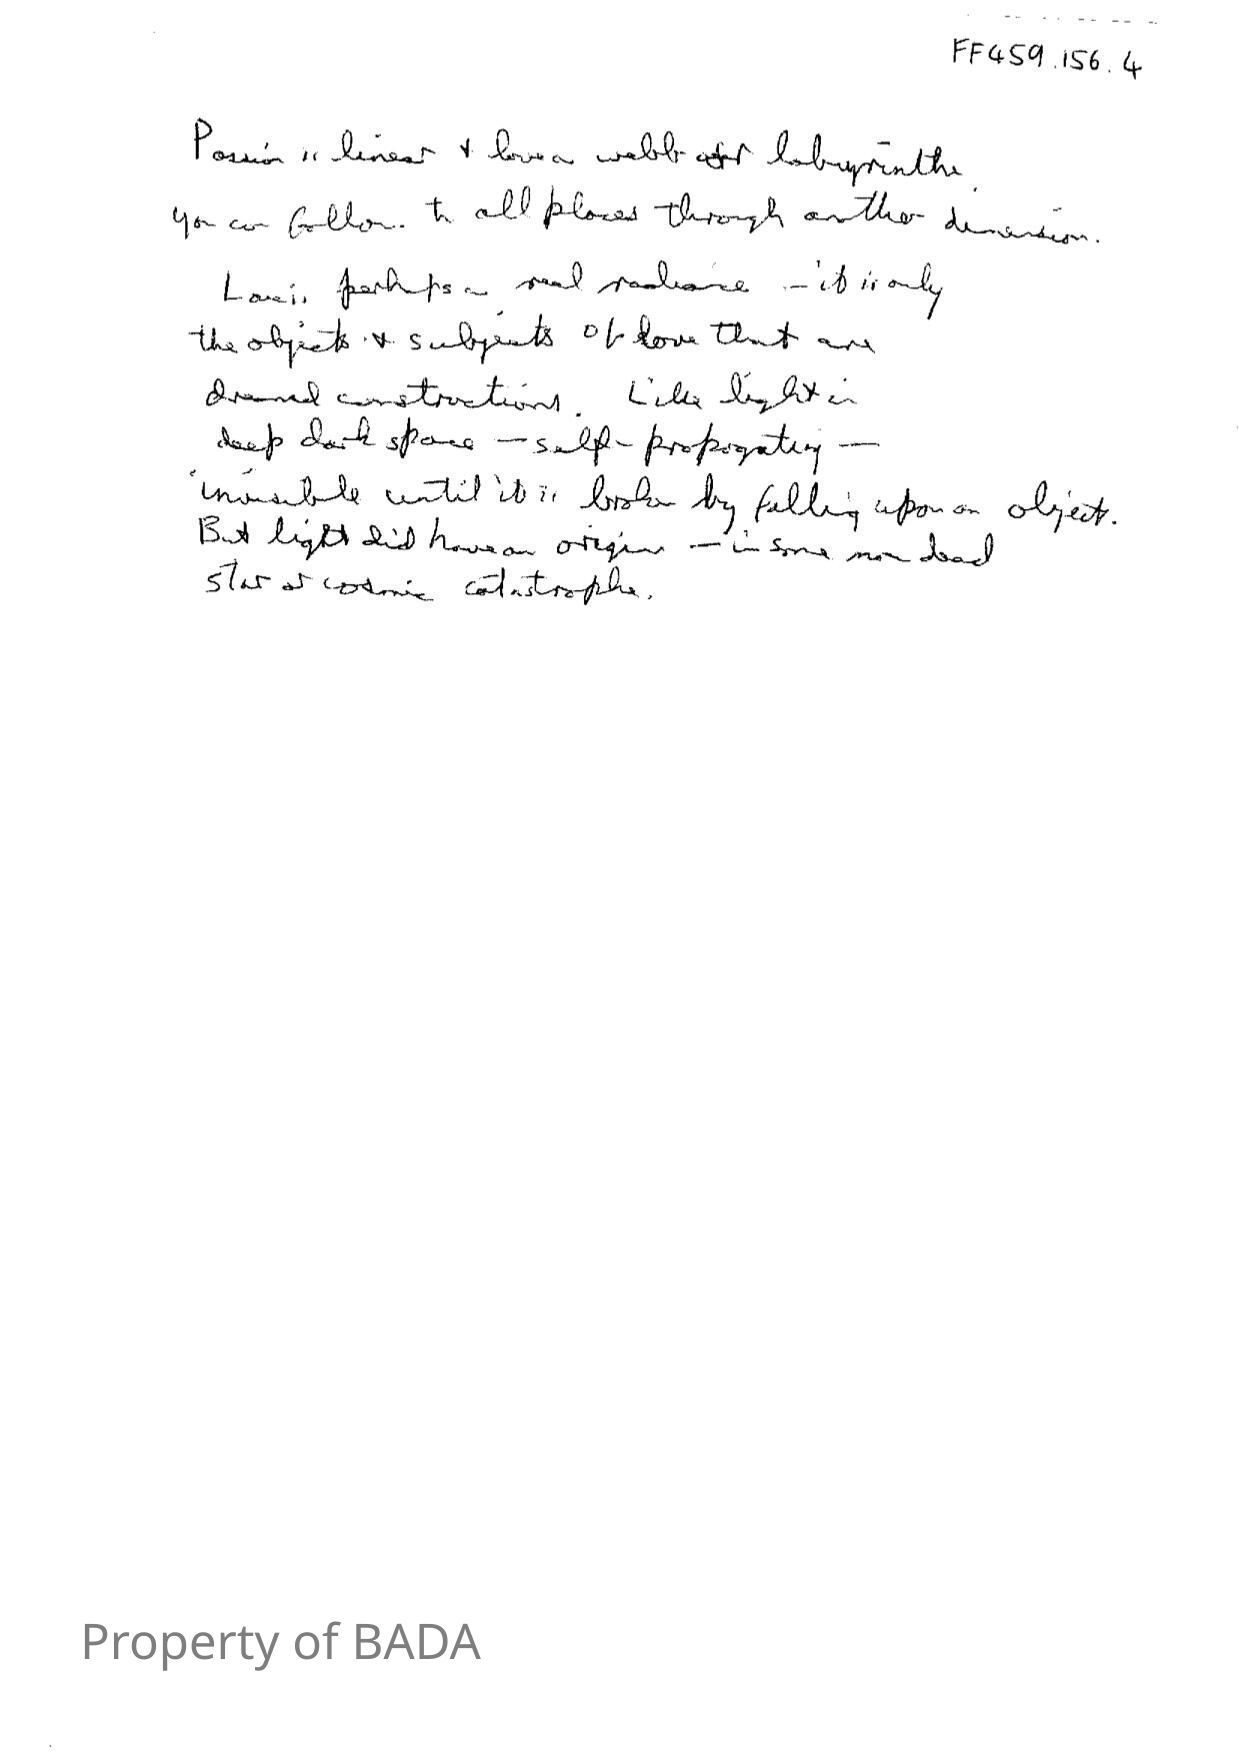 FF459.156.4
Passion is linear & love a webb or labyrinthe.
you can follow. to all places through another dimension.
Love is perhaps a real radiance – it is only
the objects & subjects of love that are
dreamed constructions. Like light in
deep dark space – self-propogating –
invisible until it is broken by falling upon an object.
But light did have an origin – in some now dead
star or cosmic catastrophe.
Property of BADA